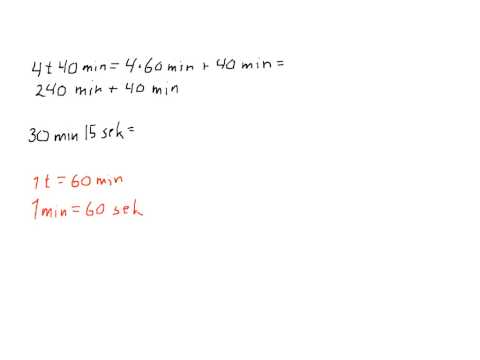 4 t 40 min = 4 · 60 min + 40 min =
240 min + 40 min
30 min 15 sek =
1 t = 60 min
1 min = 60 sek